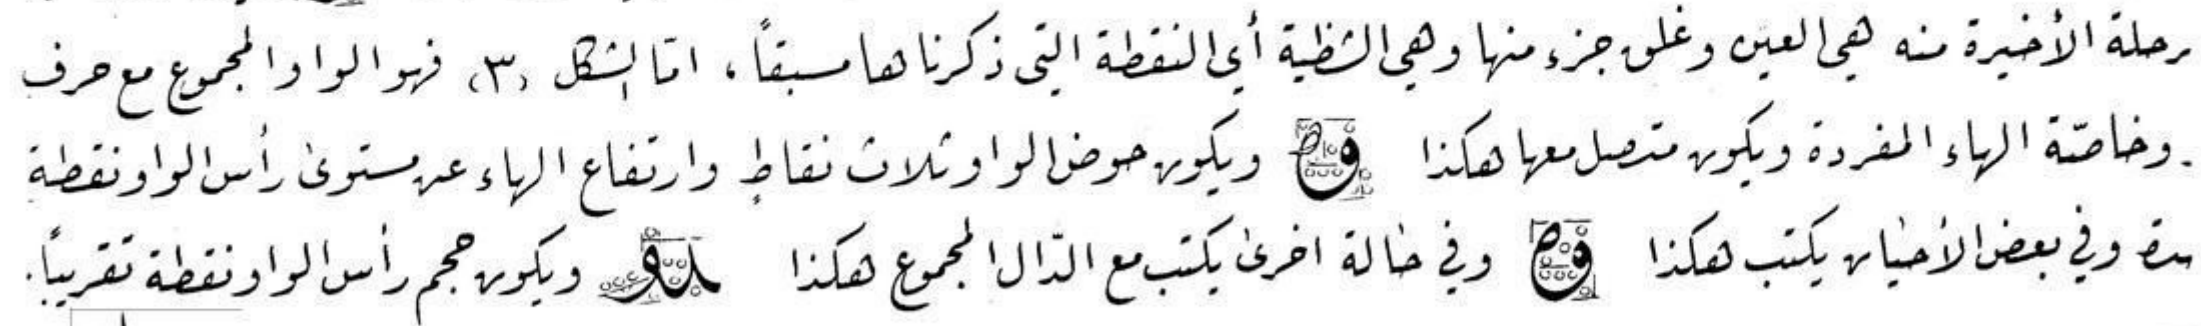 رحلة الأخيرة منه هي العين وغلق جزء منها وهي الشظية أي النقطة التي ذكرناها مسبقاً، امّا الشكل (٣) فهو الواو المجموع مع حرف
. وخاصّة الهاء المفردة ويكون متصل معها هكذا ويكون حوض الواو ثلاث نقاطٍ وارتفاع الهاء عن مستوىٰ رأس الواو نقطة
دة وفي بعض الأحيان يكتب هكذا وفي حالة اخرىٰ يكتب مع الدّال المجموع هكذا ويكون حجم رأس الواو نقطة تقريباً.